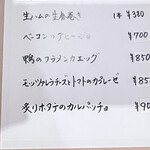 生ハムの生春巻き 1本 ¥380
ベーコン ¥700
鴨のフラメンカエッグ ¥850
モッツァレラチーズとトマトのカプレーゼ ¥85
炙りホタテのカルパッチョ ¥90